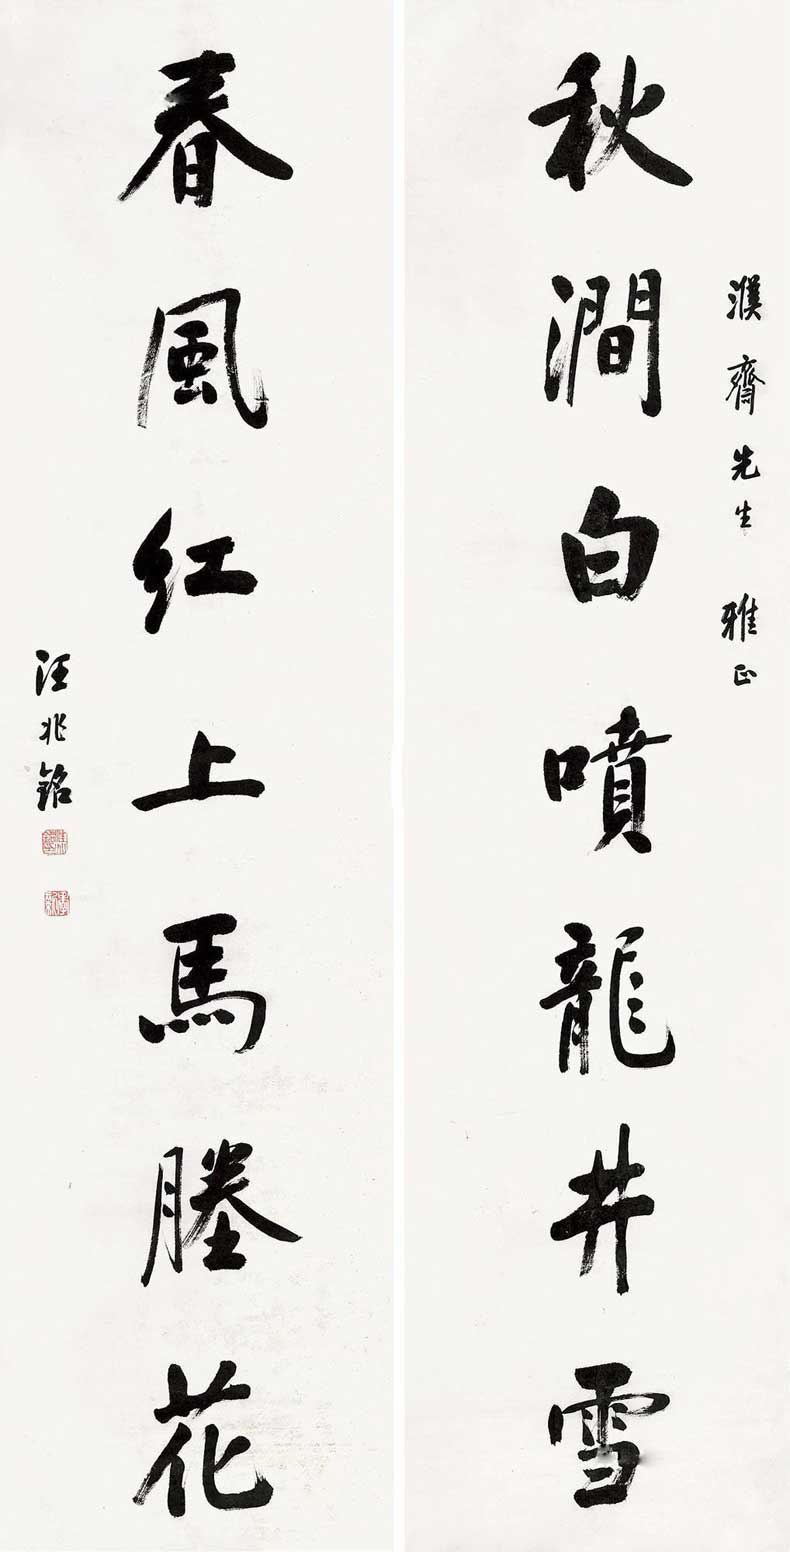 秋澗白噴龍井雪
濮齊先生 雅正
春風紅上馬塍花
汪兆銘